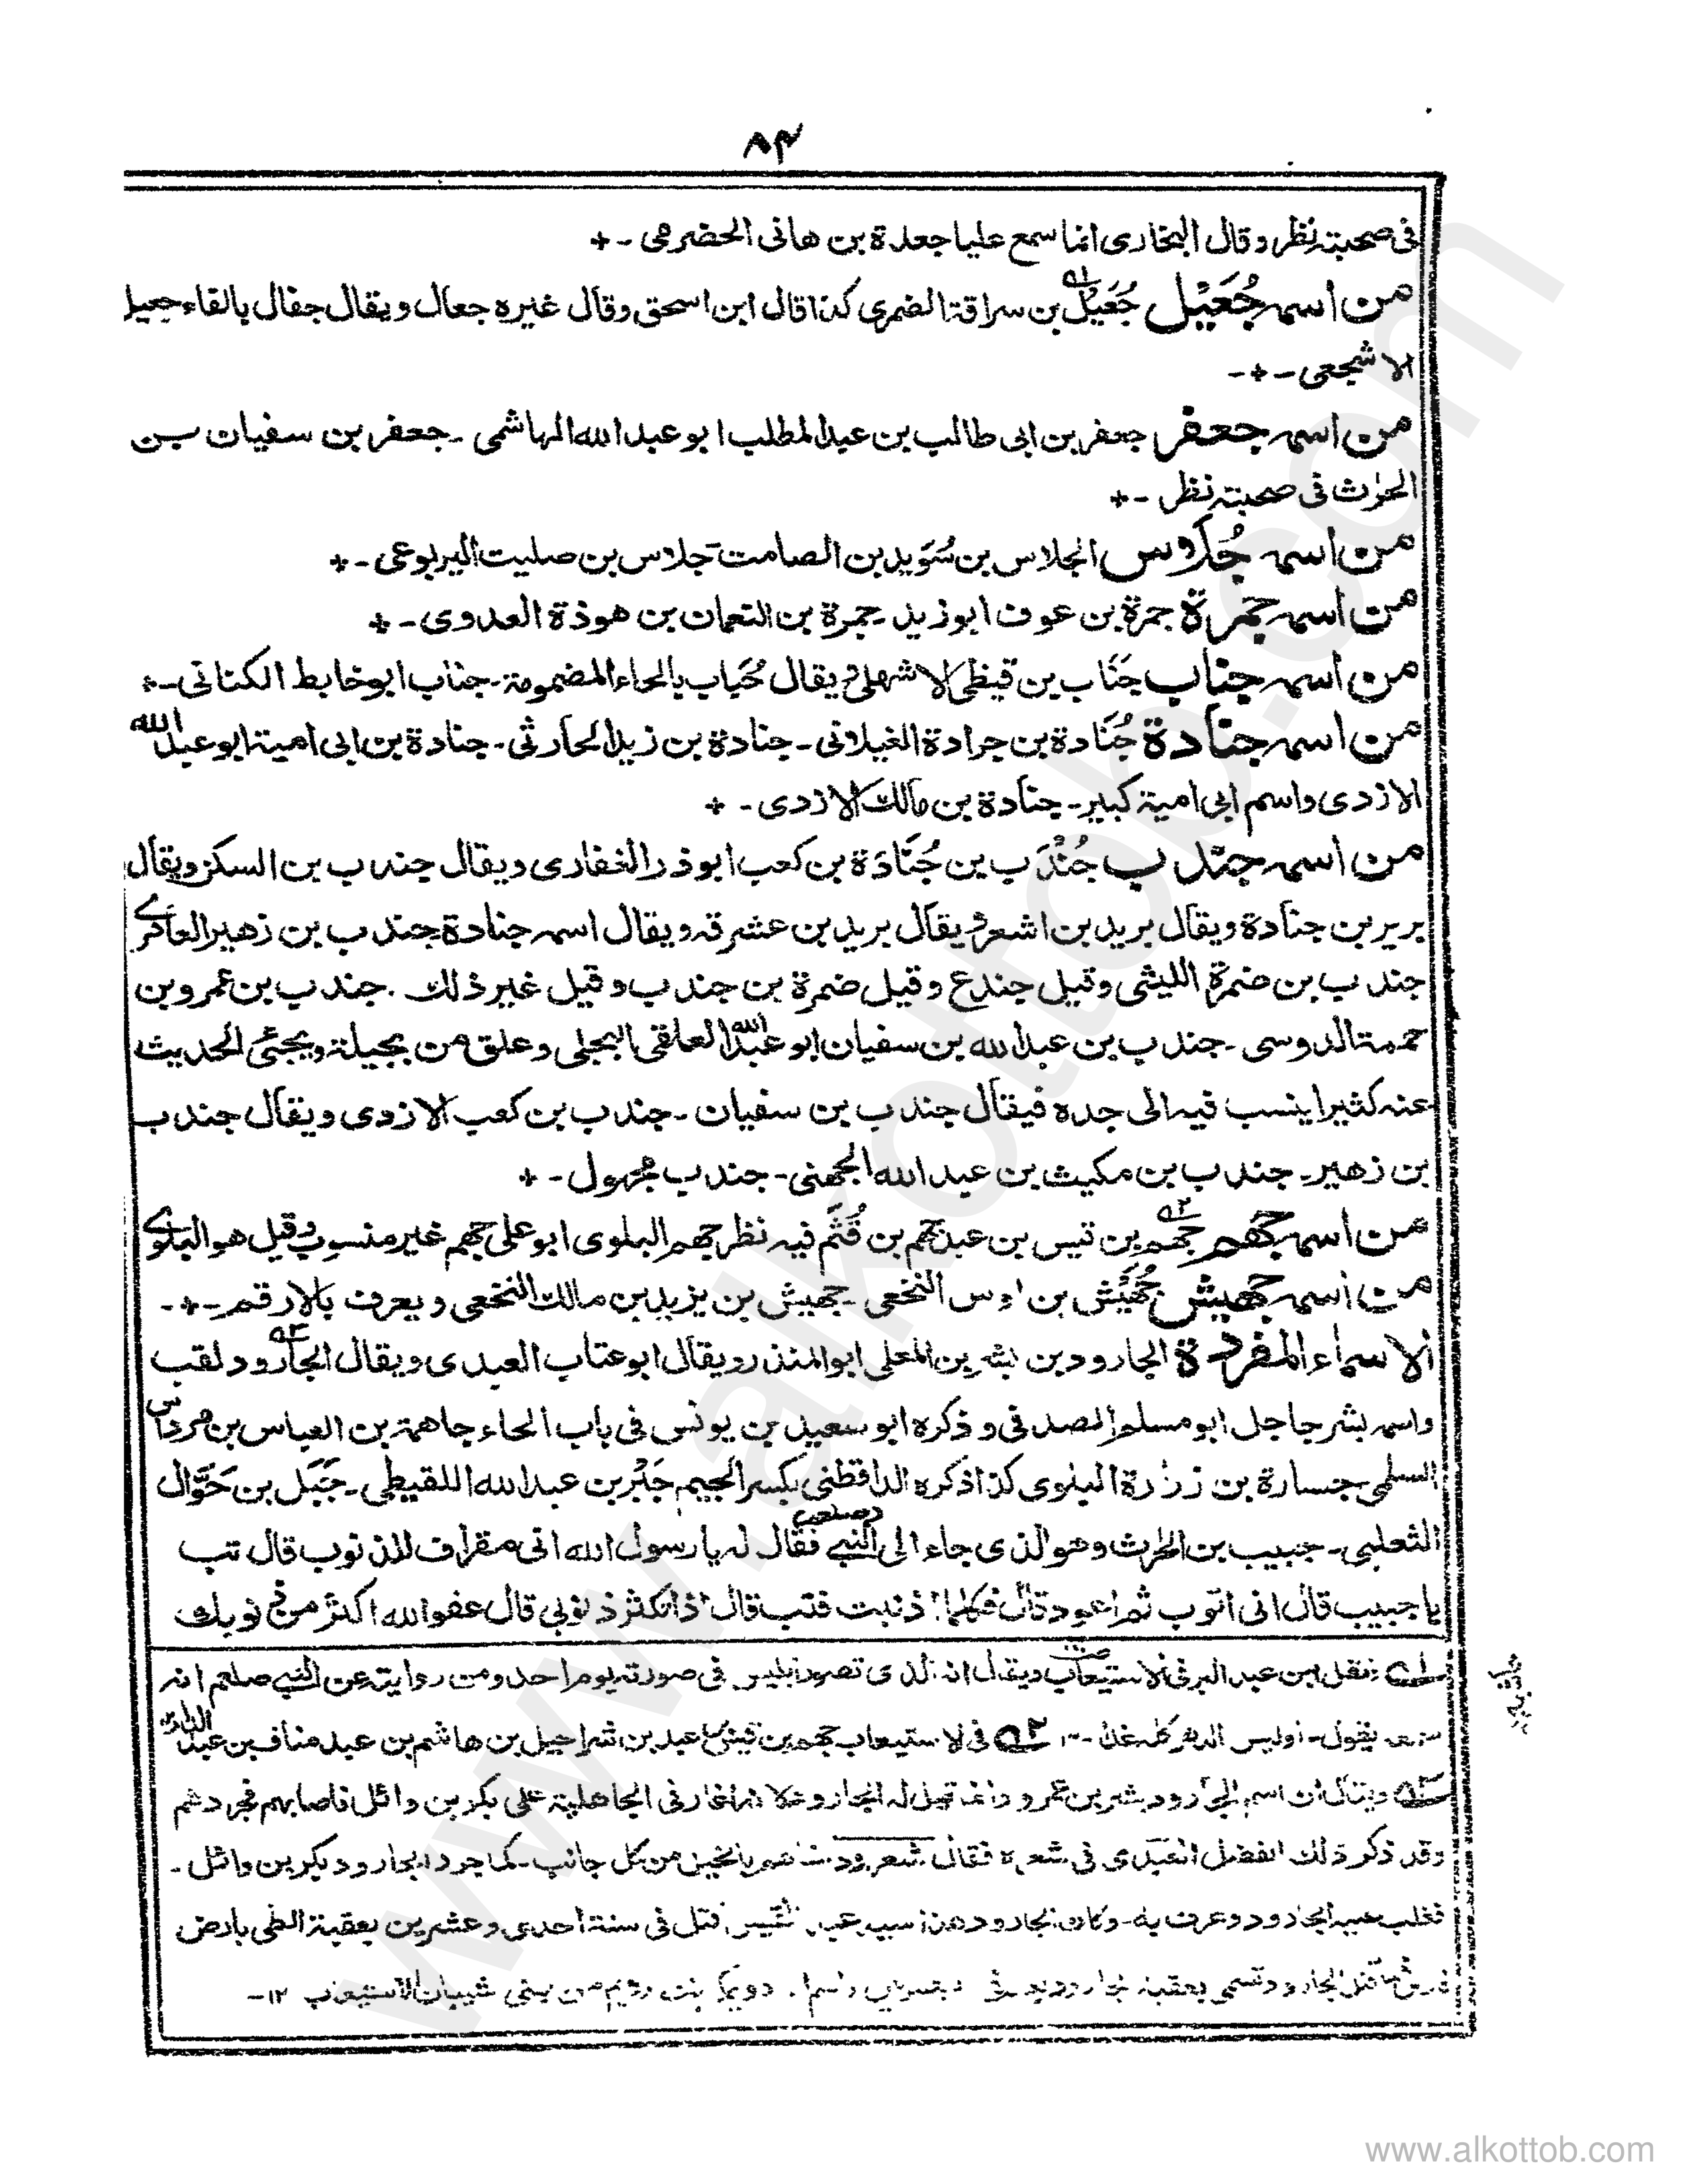 ٨٤
فى صحبته نظر وقال البخارى انما سمع عليا جعدة بن هانى الحضرمى -
من اسمه جُعَيْل جُعَيْل بن سراقة الضمرى كذا قال ابن اسحق وقال غيره جعال ويقال جفال بالفاء جعيل
الاشجعى -
من اسمه جعفر جعفر بن ابى طالب بن عبد المطلب ابو عبد الله الهاشمى - جعفر بن سفيان بن
الحرث فى صحبته نظر -
من اسمه جُلاوس الجلاس بن سُوَيد بن الصامت جلاس بن صليت اليربوعى -
من اسمه جَمرة جمرة بن عوف ابو زيد - جمرة بن النعمان بن هوذة العدوى -
من اسمه جناب جَنَاب بن قيظى الاشهلى ويقال حُباب بالحاء المضمومة - جناب ابو خابط الكنانى -
من اسمه جنادة جُنَادة بن جرادة الغيلانى - جنادة بن زيد الحارثى - جنادة بن ابى امية ابو عبد الله
الازدى واسم ابى امية كبير - جنادة بن مالك الازدى -
من اسمه جندب جُنْدَب بن جُنَادَة بن كعب ابو ذر الغفارى ويقال جندب بن السكن ويقال
برير بن جنادة ويقال بريد بن اشعر ويقال بريد بن عشرقه ويقال اسمه جنادة جندب بن زهير العامرى
جندب بن ضمرة الليثى وقيل جندع وقيل ضمرة بن جندب وقيل غير ذلك . جندب بن عمرو بن
حممة الدوسى - جندب بن عبد الله بن سفيان ابو عبد الله العلقى البجلى وعلق من بجيلة ويجئ الحديث
عنه كثيرا ينسب فيه الى جده فيقال جندب بن سفيان - جندب بن كعب الازدى ويقال جندب
بن زهير - جندب بن مكيث بن عبد الله الجهنى - جندب مجهول -
من اسمه جهم جهم بن قيس بن عبد جهم بن قُثَم فيه نظر جهم البلوى ابو على جهم غير منسوب وقيل هو البلوى
من اسمه جهيش جُهَيْش بن اوس النخعى - جهيش بن يزيد بن مالك النخعى ويعرف بالارقم -
الاسماء المفردة الجارود بن بشر بن المعلى ابو المنذر ويقال ابو عتاب العبدى ويقال الجارود لقب
واسمه بشر جاجل ابو مسلم الصدفى وذكره ابو سعيد بن يونس فى باب الحاء جاهمة بن العباس بن مرداس
السلمى جسارة بن زرارة البلوى كذا ذكره الدارقطنى بكسر الجيم جَبْر بن عبد الله اللقيطى - جَبَل بن جَوَّال
الثعلبى - جبيب بن الحرث وهو الذى جاء الى النبى صلعم فقال له يا رسول الله انى مقراف للذنوب قال تب
يا جبيب قال انى اتوب ثم اعود قال فكلما اذنبت فتب قال اذا تكثر ذنوبى قال عفو الله اكثر من ذنوبك
١ نقل ابن عبد البر فى الاستيعاب ويقال انه الذى تصور ابليس فى صورته يوم احد ومن روايته عن النبى صلعم انه
سمعه يقول - اوليس الدهر كله غدا - ٢ فى الاستيعاب جهم بن قيس بن عبد بن شراحيل بن هاشم بن عبد مناف بن عبد الدار
٣ ويقال ان اسم الجارود بشر بن عمرو وانما قيل له الجارود لانه اغار فى الجاهلية على بكر بن وائل فاصابهم فجردهم
وقد ذكر ذلك المفضل العبدى فى شعره فقال شعر ودسناهم بالخيل من كل جانب - كما جرد الجارود بكر بن وائل -
فغلب عليه الجارود وعرف به - وكان الجارود هذا سيد عبد القيس قتل فى سنة احدى وعشرين بعقبة الطى بارض
فارس قتل الجارود وتسمى بعقبة الجارود بنت رويم من بنى شيبان الاستيعاب ١٢ -
www.alkottob.com
www.alkottob.com